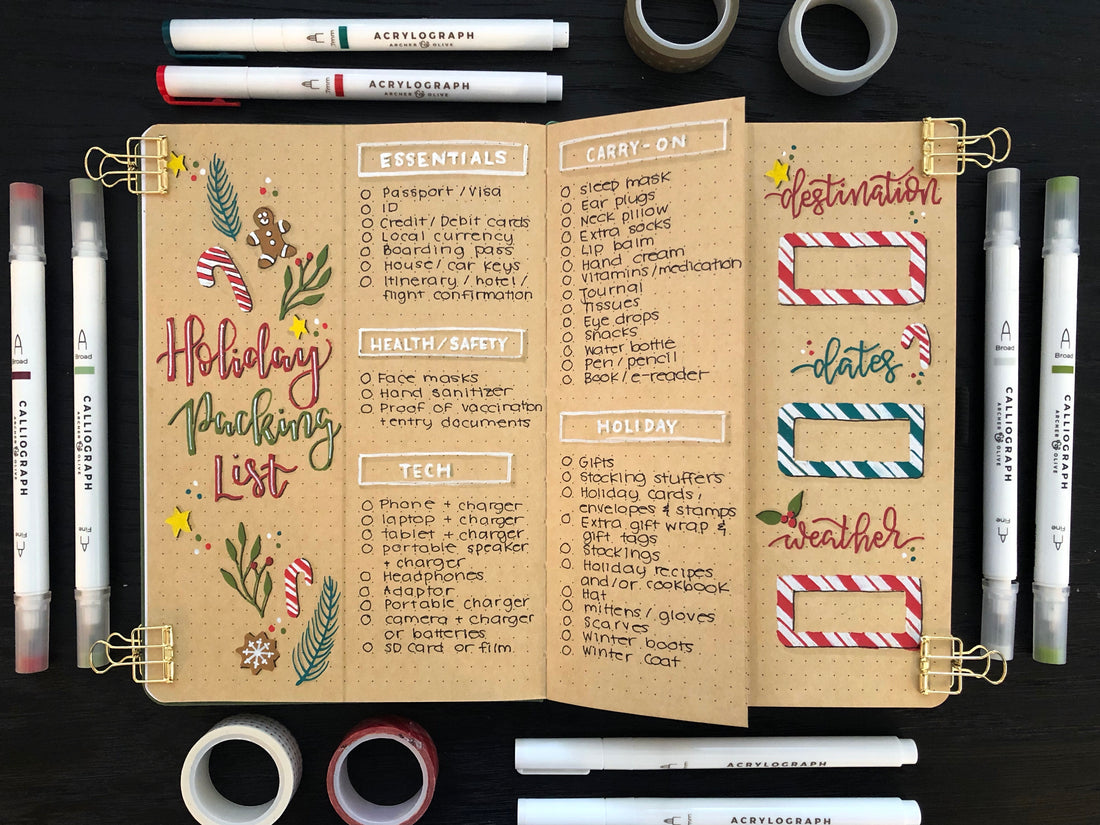 ACRYLOGRAPH
ARCHER & OLIVE
ACRYLOGRAPH
ARCHER & OLIVE
Broad
CALLIOGRAPH
ARCHER & OLIVE
Fine
Broad
CALLIOGRAPH
ARCHER & OLIVE
Fine
Holiday
Packing
List
ESSENTIALS
Passport / Visa
ID
Credit / Debit cards
Local currency
Boarding pass
House / car keys
Itinerary / hotel /
flight confirmation
HEALTH / SAFETY
Face masks
Hand sanitizer
Proof of vaccination
+ entry documents
TECH
Phone + charger
laptop + charger
tablet + charger
portable speaker
+ charger
Headphones
Adaptor
Portable charger
camera + charger
or batteries
SD card or film
CARRY-ON
sleep mask
Ear plugs
Neck pillow
Extra socks
Lip balm
Hand cream
Vitamins / medication
Journal
Tissues
Eye drops
snacks
water bottle
Pen / pencil
Book / e-reader
HOLIDAY
Gifts
stocking stuffers
Holiday cards,
envelopes & stamps
Extra gift wrap &
gift tags
stockings
Holiday recipes
and/or cookbook
Hat
mittens / gloves
scarves
winter boots
winter coat
destination
dates
weather
Broad
CALLIOGRAPH
ARCHER & OLIVE
Fine
Broad
CALLIOGRAPH
ARCHER & OLIVE
Fine
ACRYLOGRAPH
ACRYLOGRAPH